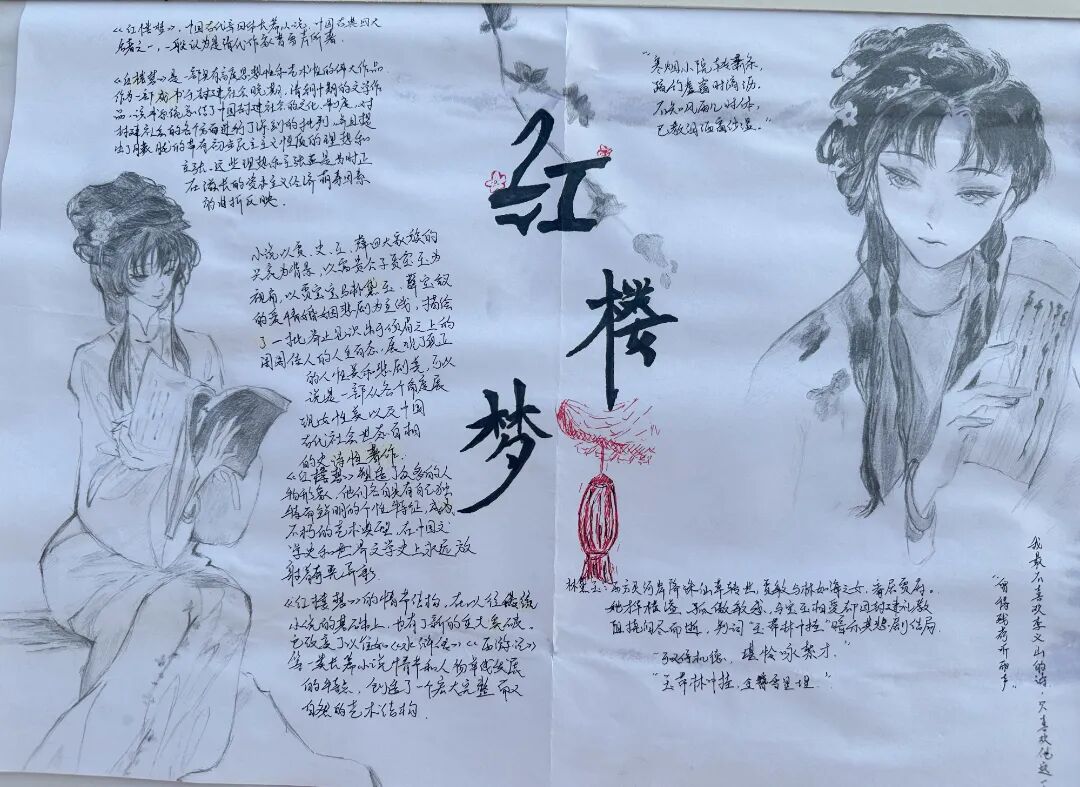 《红楼梦》，中国古代章回体长篇小说，中国古典四大
名著之一，一般认为是清代作家曹雪芹所著。
《红楼梦》是一部具有高度思想性和艺术性的伟大作品
作为一部成书于封建社会晚期，清朝中期的文学作
品，该书系统总结了中国封建社会的文化、制度，对
封建社会的各个方面进行了深刻的批判，并且提
出了朦胧的带有初步民主主义性质的理想和
主张。这些理想和主张正是当时正
在滋长的资本主义经济萌芽因素
的曲折反映。
小说以贾、史、王、薛四大家族的
兴衰为背景，以富贵公子贾宝玉为
视角，以贾宝玉与林黛玉、薛宝钗
的爱情婚姻悲剧为主线，描绘
了一批举止见识出于须眉之上的
闺阁佳人的人生百态，展现了真正
的人性美和悲剧美，可以
说是一部从各个角度展
现女性美以及中国
古代社会世态百相
的史诗性著作。
《红楼梦》塑造了众多的人
物形象，他们各自具有自己独
特而鲜明的个性特征，成为
不朽的艺术典型，在中国文
学史和世界文学史上永远放
射着奇异光彩。
《红楼梦》的情节结构，在以往传统
小说的基础上，也有了新的重大突破。
它改变了以往如《水浒传》《西游记》
等一类长篇小说情节和人物单线发展
的特点，创造了一个宏大完整而又
自然的艺术结构。
红
楼
梦
"寒烟小院转萧条，
疏竹虚窗时滴沥。
不知风雨几时休，
已教泪洒窗纱湿。"
林黛玉：西方灵河岸绛珠仙草转世，贾敏与林如海之女，寄居贾府。
她才华横溢、孤傲敏感，与宝玉相爱却因封建礼教
阻挠泪尽而逝，判词"玉带林中挂"暗示其悲剧结局。
"可叹停机德，堪怜咏絮才。"
"玉带林中挂，金簪雪里埋。"
我最不喜欢李义山的诗，只喜欢他这一
"留得残荷听雨声"